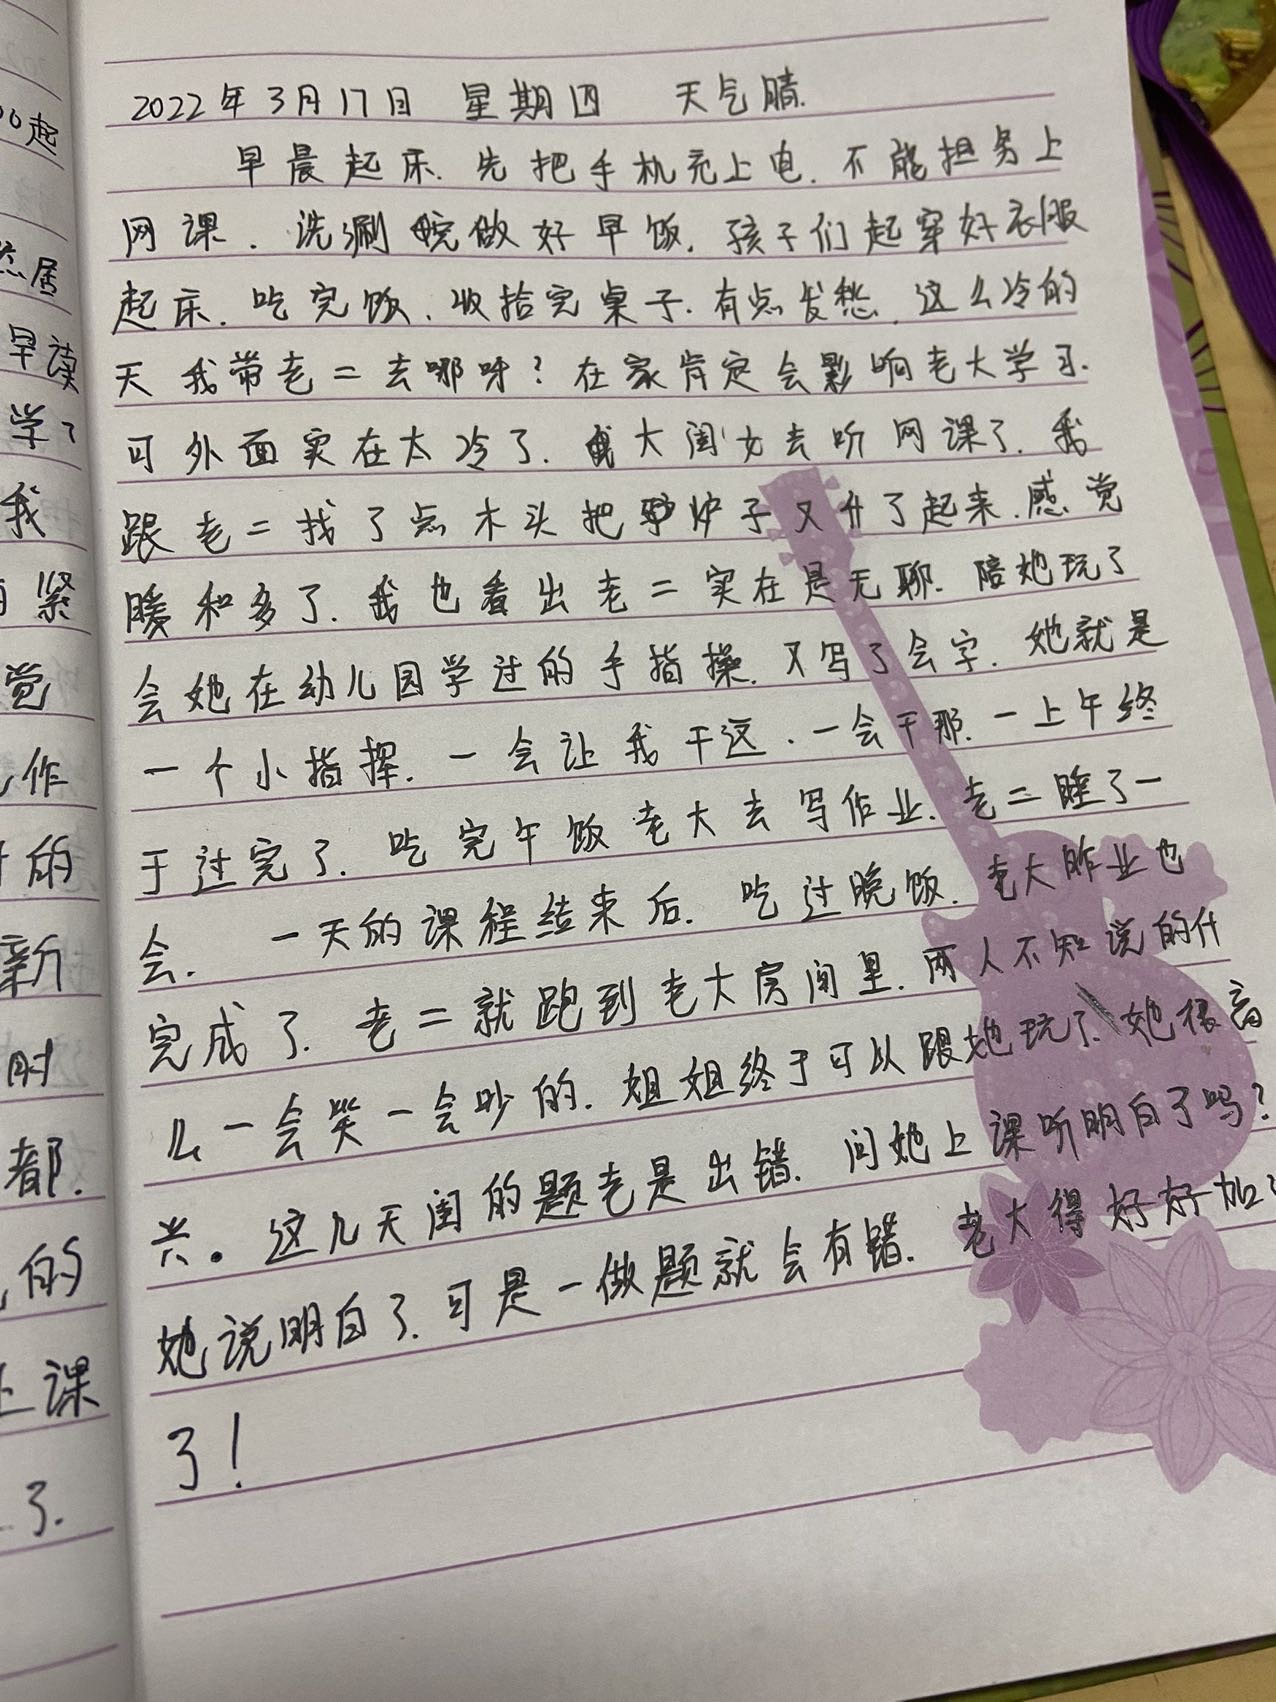 2022年3月17日 星期四 天气晴.
早晨起床.先把手机充上电.不能担务上
网课.洗涮晥做好早饭.孩子们起穿好衣服
起床.吃完饭、收拾完桌子.有点发愁.这么冷的
天我带老二去哪呀?在家肯定会影响老大学习.
可外面实在太冷了.大闺女去听网课了.我
跟老二找了点木头把炉子又升了起来.感觉
暖和多了.我也看出老二实在是无聊.陪她玩了
会她在幼儿园学过的手指操.又写了会字.她就是
一个小指挥.一会让我干这、一会干那.一上午终
于过完了.吃完午饭老大去写作业.老二睡了一
会. 一天的课程结束后.吃过晚饭.老大昨业也
完成了.老二就跑到老大房间里.两人不知说的什
么一会笑一会吵的.姐姐终于可以跟她玩了.她很高
兴。这几天闺的题老是出错.问她上课听明白了吗?
她说明白了.可是一做题就会有错.老大得好好加
了!
00起
居
早读
学了
我
紧
觉
作
的
新
时
都.
的
上课
了.